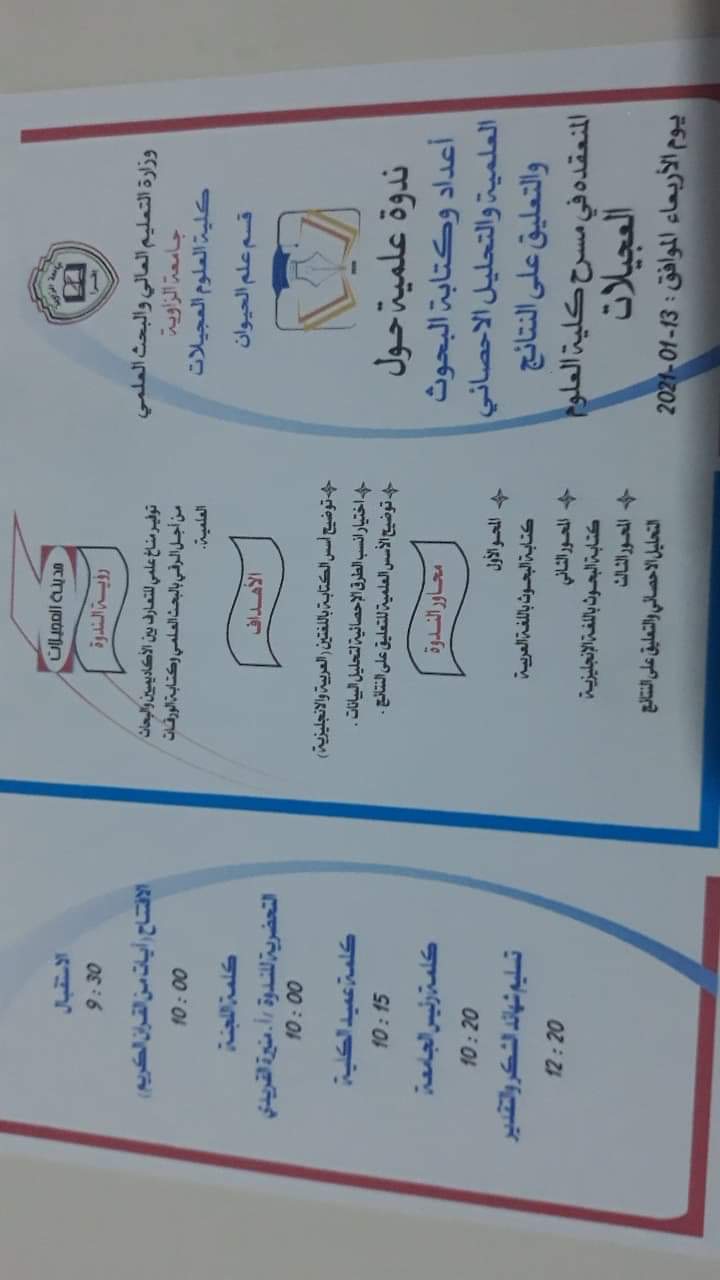 وزارة التعليم العالي والبحث العلمي
جامعة الزاوية
كلية العلوم العجيلات
قسم علم الحيوان
ندوة علمية حول
أعداد وكتابة البحوث
العلمية والتحليل الاحصائي
والتعليق على النتائج
المنعقده في مسرح كلية العلوم
العجيلات
يوم الأربعاء الموافق : 13-01-2021
مدينة العجيلات
رؤية الندوة
توفير مناخ علمي للتعارف بين الأكاديميين والبحاث
من أجل الرقي بالبحث العلمي وكتابة الورقات
العلمية.
الأهداف
توضيح أسس الكتابة باللغتين (العربية والانجليزية)
اختيار انسب الطرق الإحصائية لتحليل البيانات .
توضيح الأسس العلمية للتعليق على النتائج .
محاور الندوة
المحور الأول
كتابة البحوث باللغة العربية
المحور الثاني
كتابة البحوث باللغة الإنجليزية
المحور الثالث
التحليل الاحصائي والتعليق على النتائج
الاستقبال
9 : 30
الافتتاح (أيات من القران الكريم)
10 : 00
كلمة اللجنة
التحضرية للندوة /أ. منيرة الفريدي
10 : 00
كلمة عميد الكلية
10 : 15
كلمة رئيس الجامعة
10 : 20
تسليم شهائد الشكر والتقدير
12 : 20